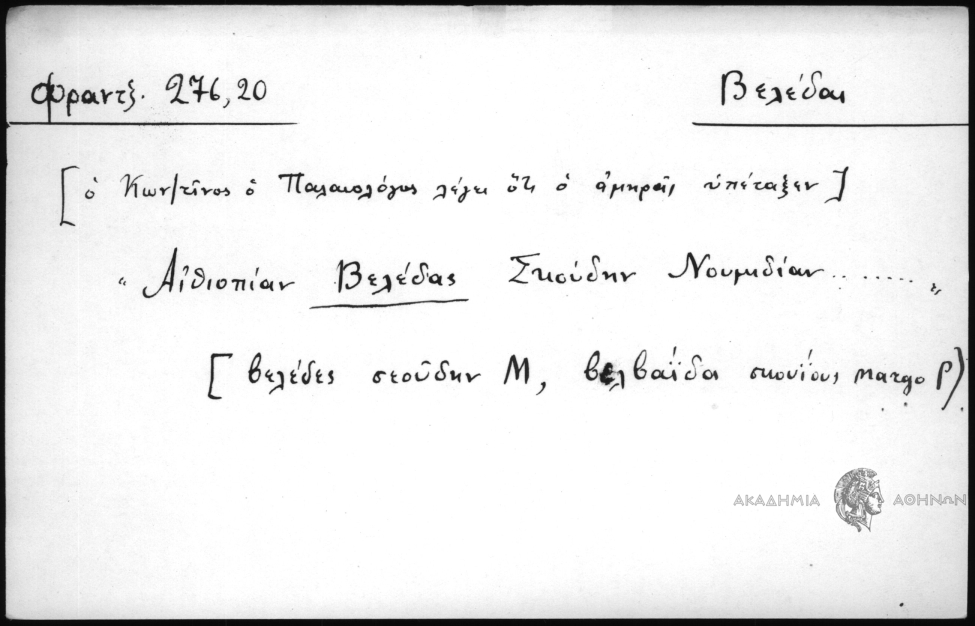 Φραντξ. 276,20 Βελέδαι
[ὁ Κων/τῖνος ὁ Παλαιολόγος λέγει ὅτι ὁ ἀμηρᾶς ὑπέταξεν]
" Αἰθιοπίαν Βελέδας Σκούδην Νουμιδίαν ........ "
[βελέδες σεοῦδην Μ, βελβαΐδα σκουίους margo P)
ΑΚΑΔΗΜΙΑ ΑΘΗΝΩΝ